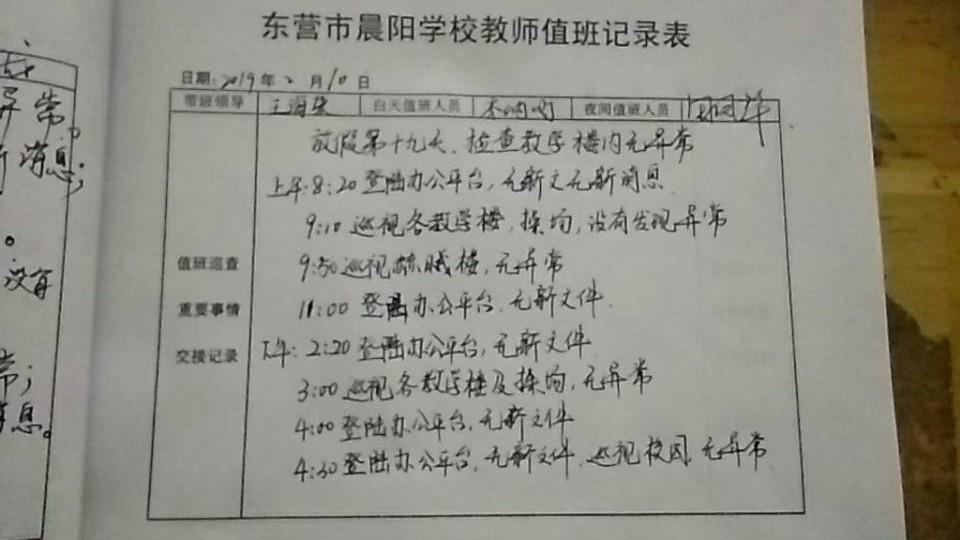 常。
消息;
。
没有
常;
消息。
东营市晨阳学校教师值班记录表
日期:2019年2月10日
带班领导 王海 白天值班人员 夜间值班人员
放假第十九天、检查教学楼内无异常
上午:8:20登陆办公平台,无新文无新消息
9:10巡视各教学楼、操场,没有发现异常
值班巡查 9:50巡视楼,无异常
重要事情 11:00登陆办公平台、无新文件.
交接记录 下午:2:20登陆办公平台,无新文件
3:00巡视各教学楼及操场,无异常
4:00登陆办公平台,无新文件
4:30登陆办公平台、无新文件、巡视校园,无异常